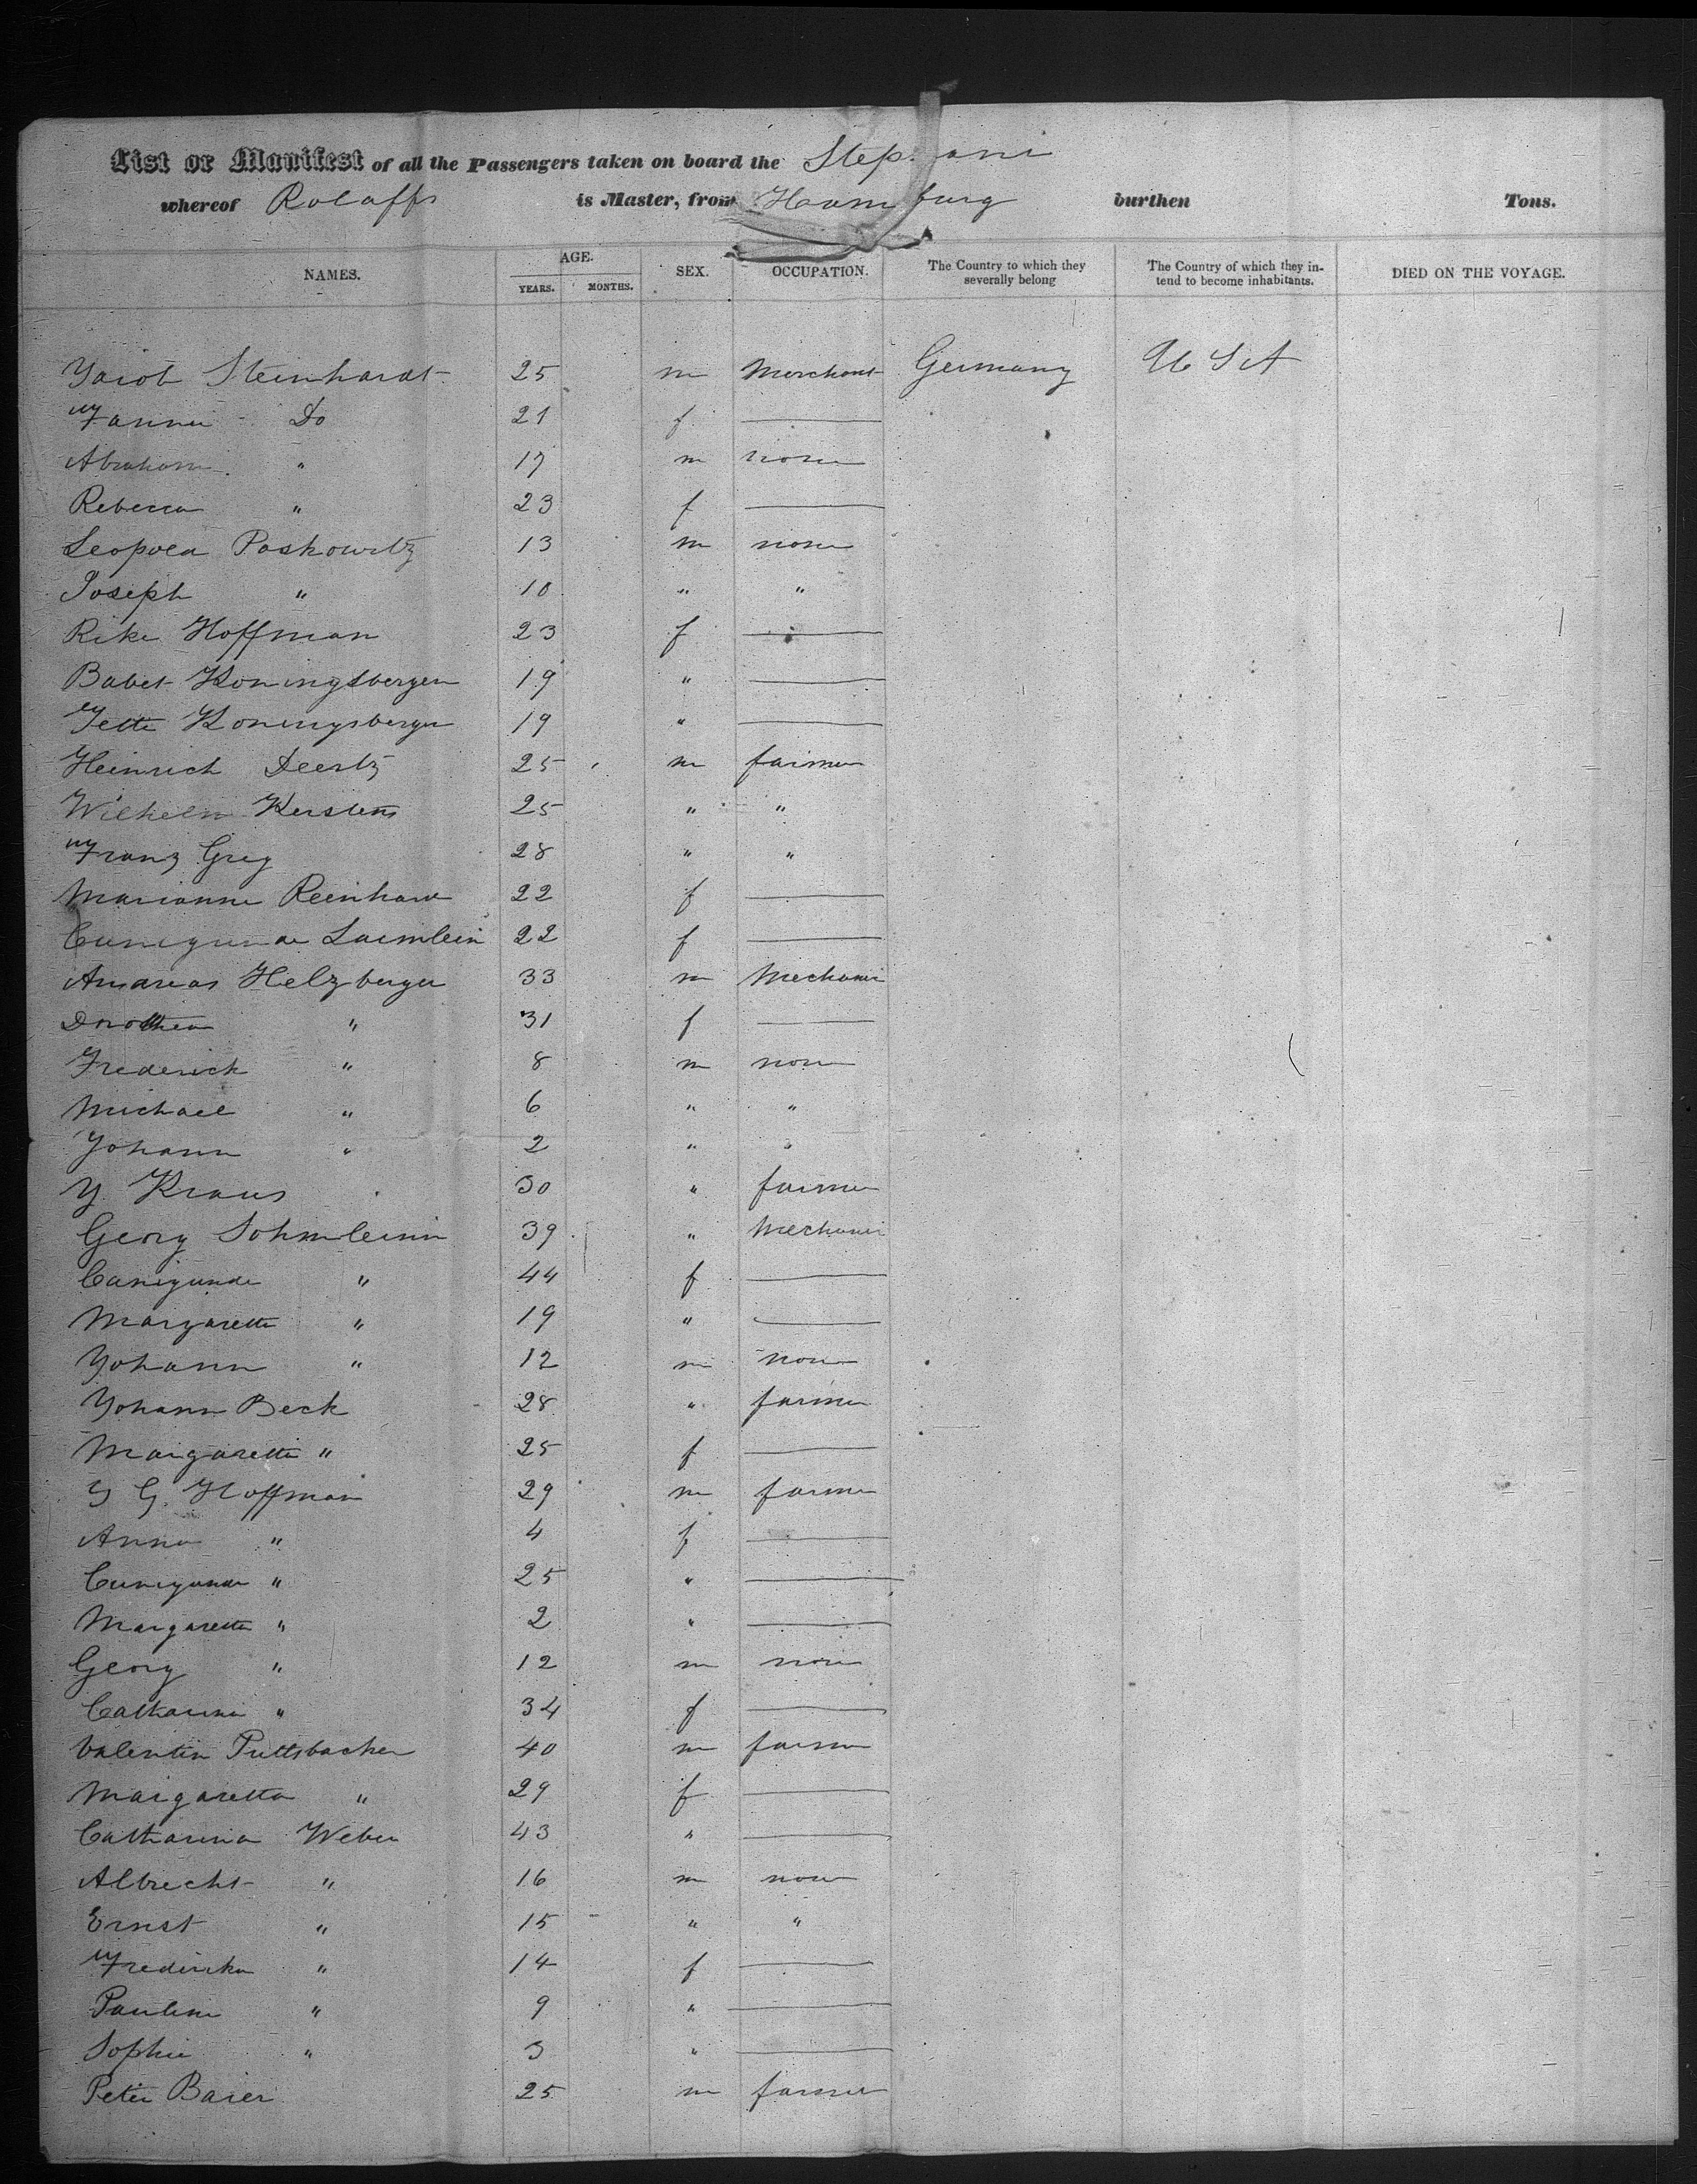 List or Manifest of all the Passengers taken on board the Step ani
whereof Rolaffs is Master, from Hamburg burthen Tons.
NAMES. AGE. YEARS. MONTHS. SEX. OCCUPATION. The Country to which they severally belong The Country of which they intend to become inhabitants. DIED ON THE VOYAGE.
Yacob Steinhardt 25 m Merchant Germany U S A
Fanni Do 21 f
Abraham " 17 m none
Rebecca " 23 f
Leopold Poskowitz 13 m none
Joseph " 10 " "
Rike Hoffman 23 f
Babet Koningsberger 19 "
Jette Koningsberger 19 "
Heinrich Deertz 25 m farmer
Wilhelm Kerstens 25 " "
Franz Greg 28 " "
Marianne Reinhard 22 f
Cunigunde Laemlein 22 f
Andreas Helzberger 33 m Mechanic
Dorothea " 31 f
Frederick " 8 m none
Michael " 6 " "
Yohann " 2 " "
Y. Kraus 30 " farmer
Georg Sohmleinn 39 " Mechanic
Canigunde " 44 f
Margarette " 19 "
Yohann " 12 m none
Yohann Beck 28 " farmer
Margarette " 25 f
Y G. Hoffman 29 m farmer
Anna " 4 f
Cunigunde " 25 "
Margarette " 2 "
Georg " 12 m none
Catharina " 34 f
Valentin Puttsbacher 40 m farmer
Margaretta " 29 f
Catharina Weber 43 "
Albrecht " 16 m none
Ernst " 15 " "
Fredericka " 14 f
Pauline " 9 "
Sophie " 3 "
Peter Baier 25 m farmer